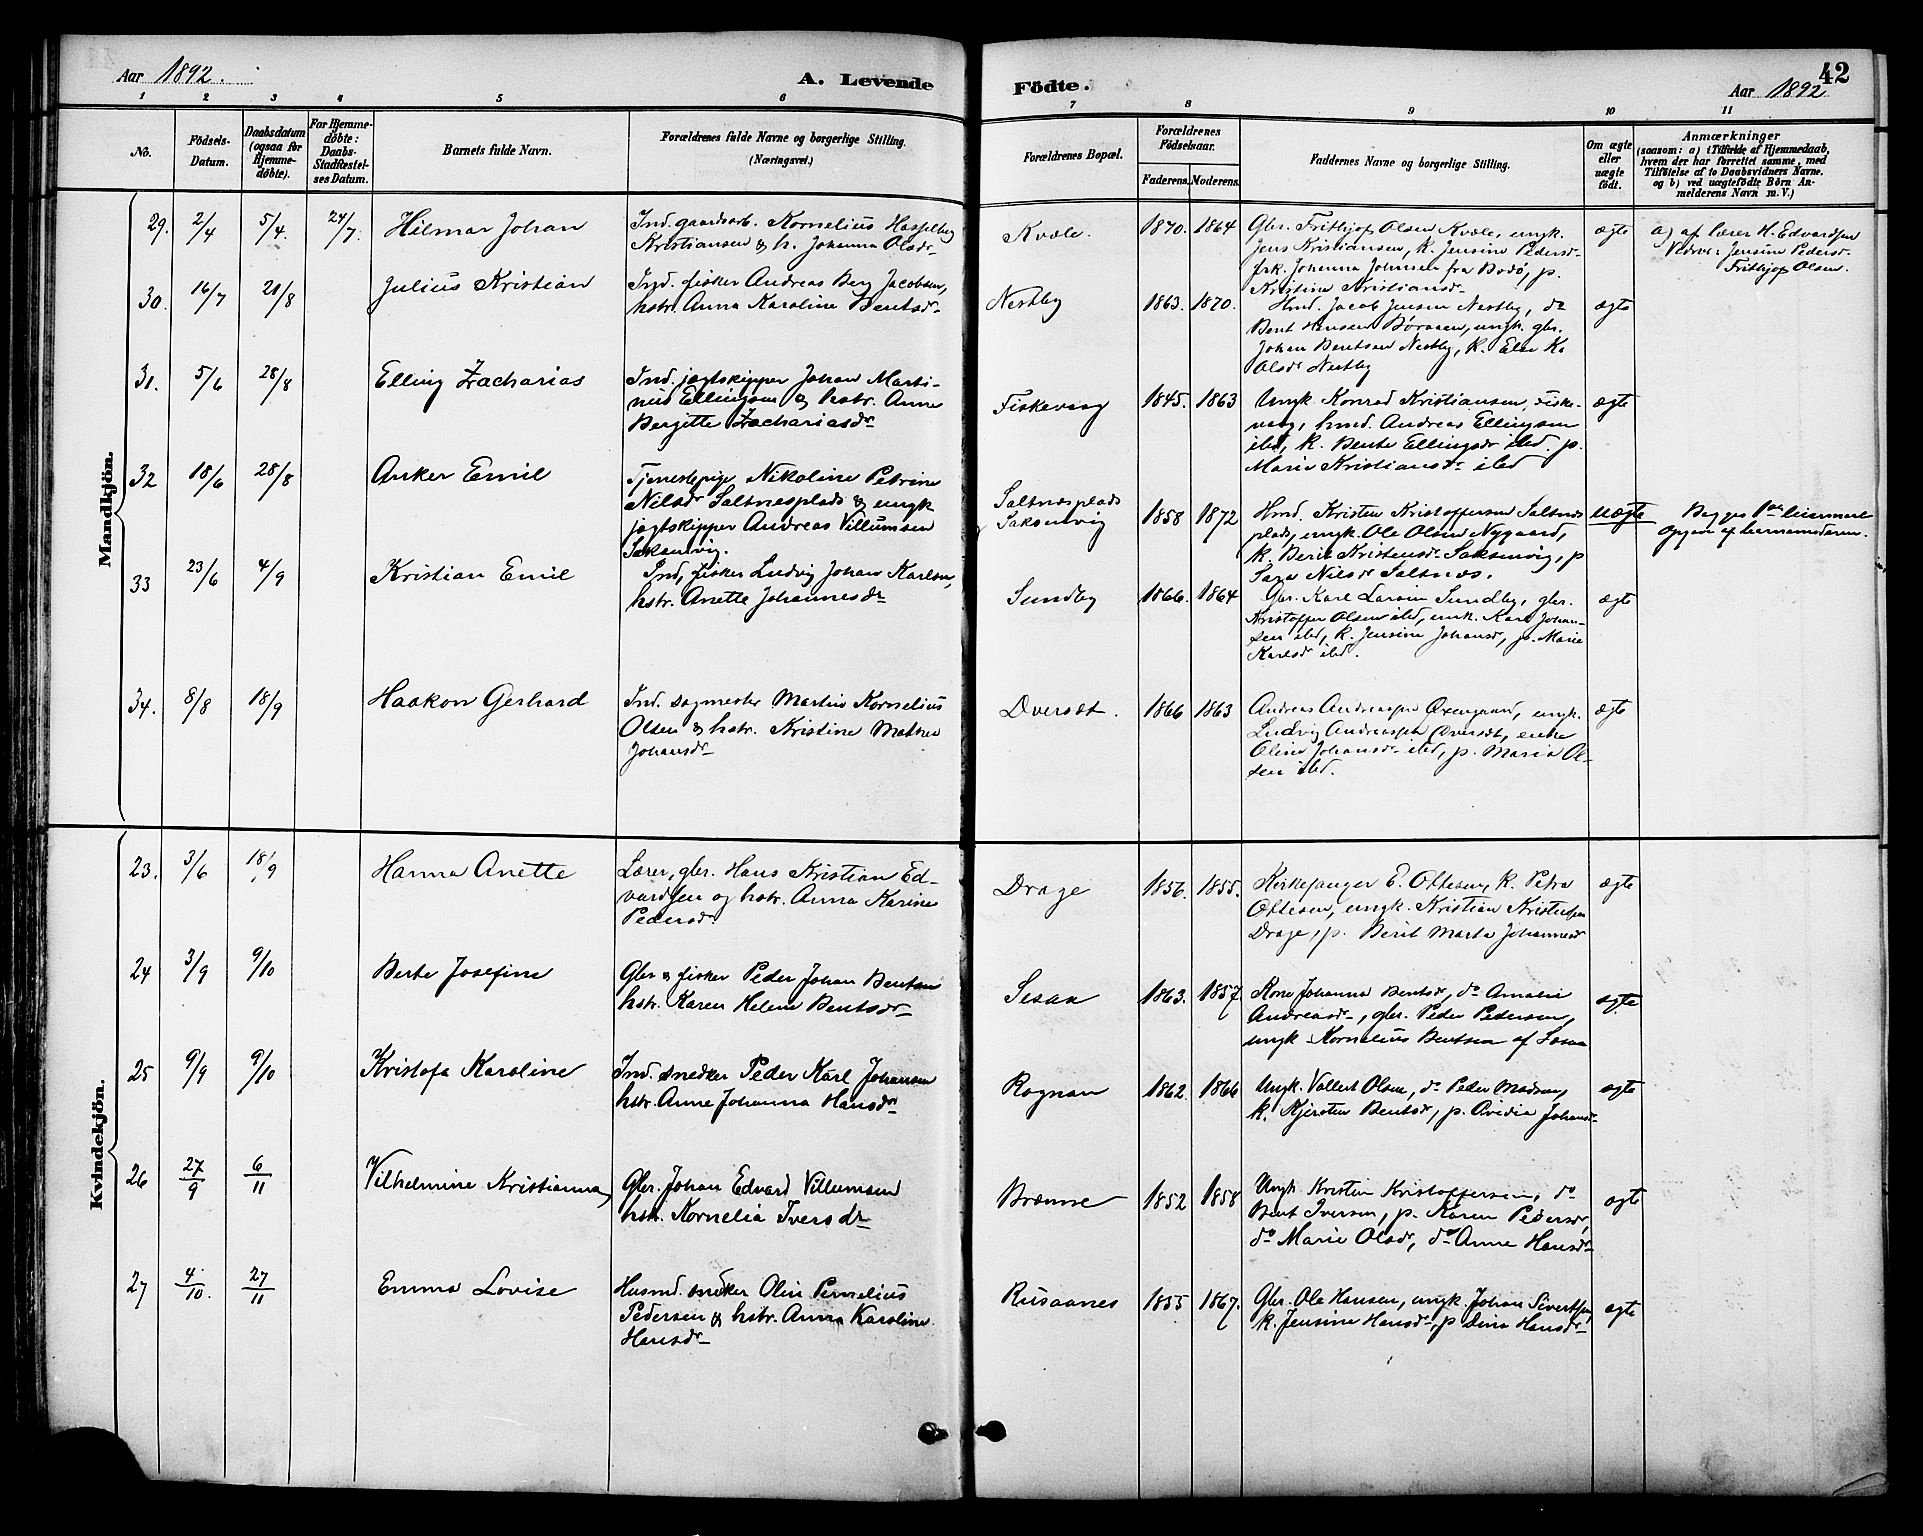 Aar 1892.
A. Levende
Födte.
42
Aar 1892
1 2 3 4 5 6 7 8 9 10 11
No.
Födsels-Datum.
Daabsdatum (ogsaa for Hjemmedøbte).
For Hjemmedøbte: Daabs-Stadfæstelses Datum.
Barnets fulde Navn.
Forældrenes fulde Navne og borgerlige Stilling. (Næringsvei.)
Forældrenes Bopæl.
Forældrenes Fødselsaar.
Faderens. Moderens.
Faddernes Navne og borgerlige Stilling.
Om ægte eller uægte født.
Anmærkninger
(saasom: a) i Tilfælde af Hjemmedaab, hvem der har forrettet samme, med Tilføielse af to Daabsvidners Navne, og b) ved uægtefødte Børn Anmelderens Navn m. V.)
Mandkjön.
29. 2/4 5/4. 24/7. Hilmar Johan
Ind. gaardsarb. Kornelius Hasselberg
Kristiansen & h. Johanna Olsdr
Kvæle. 1870. 1864
Gbr. Frithjof Olsen Kvæle, ungk.
Jens Kristiansen, k. Jensine Pedersdr
frk. Johanna Johnsen fra Bodø, p.
Kristine Kristiansdr
ægte
a) af lærer H. Edvardsen
Vidner: Jensine Pedersdr
Frithjof Olsen.
30. 16/7 21/8 Julius Kristian
Ind. fisker Andreas Berg Jacobsen,
hstr. Anna Karoline Bentsdr
Nestby 1863. 1870.
Hmd. Jacob Jensen Nestby, do
Bent Hansen Børaasen, ungk. gbr.
Johan Bentsen Nestby, k. Elen K.
Olsdr Nestby
ægte
31. 5/6 28/8 Elling Zacharias
Ind. jægtskipper Johan Marti-
nus Ellingsen & hstr. Anne
Bergitte Zachariasdr
Fiskevaag 1845. 1863
Ungk. Konrad Kristiansen, Fiske-
vaag, hmd. Andreas Ellingsen
ibd, k. Bente Ellingsdr ibd. p.
Marie Kristiansdr ibd
ægte
32 18/6 28/8 Anker Emil
Tjenestepige Nikoline Petrine
Nilsdr Saltnesplads & ungk
jægtskipper Andreas Villumsen
Saksenvig.
Saltnæsplads
Saksenvig 1858 1872
Hmd. Kristen Kristoffersen Saltnæs
plads, ungk. Ole Olsen Nygaard,
k. Berit Kristensdr Saksenvig, p
Sara Nilsdr Saltnæs.
uægte
Begges 1ste leiermaal
Opgivet af barnemoderen.
33 23/6 4/9 Kristian Emil
Ind, fisker Ludvig Johan Karlsen,
hstr. Anette Johannesdr
Sundby 1866. 1864
Gbr. Karl Larsen Sundby, gbr.
Kristoffer Olsen ibd, ungk. Karl Johan-
sen ibd, k. Jensine Johansdr, p. Marie
Karlsdr ibd.
ægte
34. 8/8 18/9 Haakon Gerhard
Ind. sagmester Martin Kornelius
Olsen & hstr. Kristine Mathea
Johansdr
Dverset. 1866 1863
Andreas Andreassen Øxengaard, ungk.
Ludvig Andreassen Dverset, enke
Oline Johansdr ibd, p. Maria Ol-
sen ibd.
ægte
Kvindekjön.
23. 3/6 18/9 Hanna Anette
Lærer, gbr. Hans Kristian Ed-
vardsen og hstr. Anna Karine
Pedersdr
Drage 1856. 1855.
Kirkesanger E. Ottesen, k. Petra
Ottesen, ungk. Kristian Kristensen
Drage, p. Berit Marta Johannesdr
ægte
24 3/9 9/10 Berte Josefine
Gbr & fisker Peder Johan Bentsen
hstr. Karen Helene Bentsdr
Lesaa 1863. 1857.
Kone Johanna Bentsdr, do Amalie
Andreasdr, gbr. Peder Pedersen,
ungk. Kornelius Bentsen af Lesaa
ægte
25 9/9 9/10 Kristofa Karoline
Ind. snedker Peder Karl Johansen
hstr. Anne Johanna Hansdr
Rognan 1862. 1866
Ungk. Vollert Olsen, do Peder Madsen,
k. Kjersten Bentsdr, p. Ovidia Johansdr
ægte
26 27/9 6/11 Vilhelmine Kristianna
Gbr. Johan Edvard Villumsen
hstr. Kornelia Iversdr
Brænne 1852 1858
Ungk Kristen Kristoffersen, do
Bent Iversen, p. Karen Pedersdr,
do Marie Olsdr, do Anne Hansdr
ægte
27 4/10. 27/11 Emma Lovise
Husmd. snedker Olin Pernelius
Pedersen & hstr. Anna Karoline
Hansdr
Rusaanes 1855 1867.
Gbr. Ole Hansen, ungk. Johan Sivertsen,
k. Jensine Hansdr, p Lina Hansdr
ægte